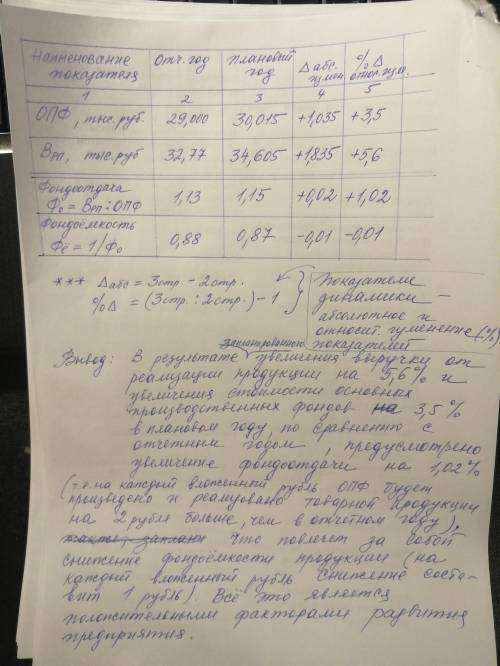 Наименование показателя | Отч. год | Плановый год | Δ абс. изм. | % Δ относ. изм.
1 | 2 | 3 | 4 | 5
ОПФ, тыс. руб. | 29,000 | 30,015 | +1,035 | +3,5
Врп, тыс. руб | 32,77 | 34,605 | +1,835 | +5,6
Фондоотдача Фо = Врп : ОПФ | 1,13 | 1,15 | +0,02 | +1,02
Фондоёмкость Фё = 1/Фо | 0,88 | 0,87 | -0,01 | -0,01
*** Δабс = 3стр. - 2стр.
%Δ = (3стр : 2стр.) - 1
Показатели
динамики –
абсолютное и
относит. изменение (%)
показателей
запланированного
Вывод: В результате увеличения выручки от
реализации продукции на 5,6% и
увеличения стоимости основных
производственных фондов на 3,5%
в плановом году, по сравнению с
отчетным годом, предусмотрено
увеличение фондоотдачи на 1,02%
(т.е. на каждый вложенный рубль ОПФ будет
произведено и реализовано товарной продукции
на 2 рубля больше, чем в отчетном году),
что повлечет за собой
снижение фондоёмкости продукции (на
каждый вложенный рубль снижение соста-
вит 1 рубль). Всё это является
положительными факторами развития
предприятия.